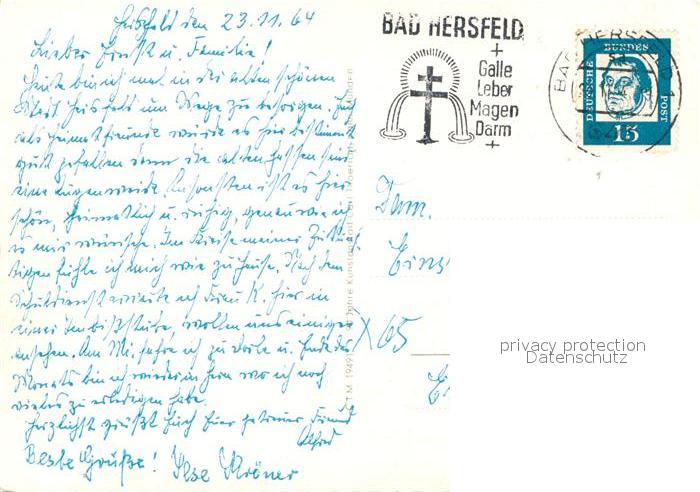 Hersfeld den 23.11.64
Lieber Ernst u. Familie!
Heute bin ich mal in der alten schönen
Stadt Hersfeld um Wege zu besorgen. Euch
als Heimatfreunde würde es hier bestimmt
gut gefallen denn die alten Gassen sind
eine Augenweide. Ansonsten ist es hier
schön, heimatlich u. ruhig, genau wie ich
es mir wünsche. Im Kreise meiner
fühle ich mich wie zu Hause. Nach dem
Schuldienst erwarte ich Frau K. hier in
einer Imbißstube, wollen uns einiges
ansehen. Am Mi. fahre ich zu Dorle u. Ende des
Monats bin ich wieder in wo ich noch
vieles zu erledigen habe.
Herzlichst grüßt Euch Euer getreuer Freund
Alfred
Beste Grüße! Ilse Kröner
BAD HERSFELD
+
Galle
Leber
Magen
Darm
+
BAD HERSFELD 1
DEUTSCHE BUNDESPOST
15
Fam.
Erns
X 65
privacy protection
Datenschutz